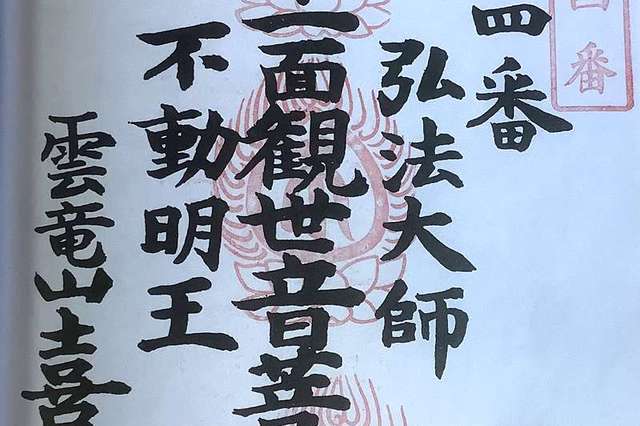 番
四番
弘法大師
一面観世音菩
不動明王
雲竜山喜